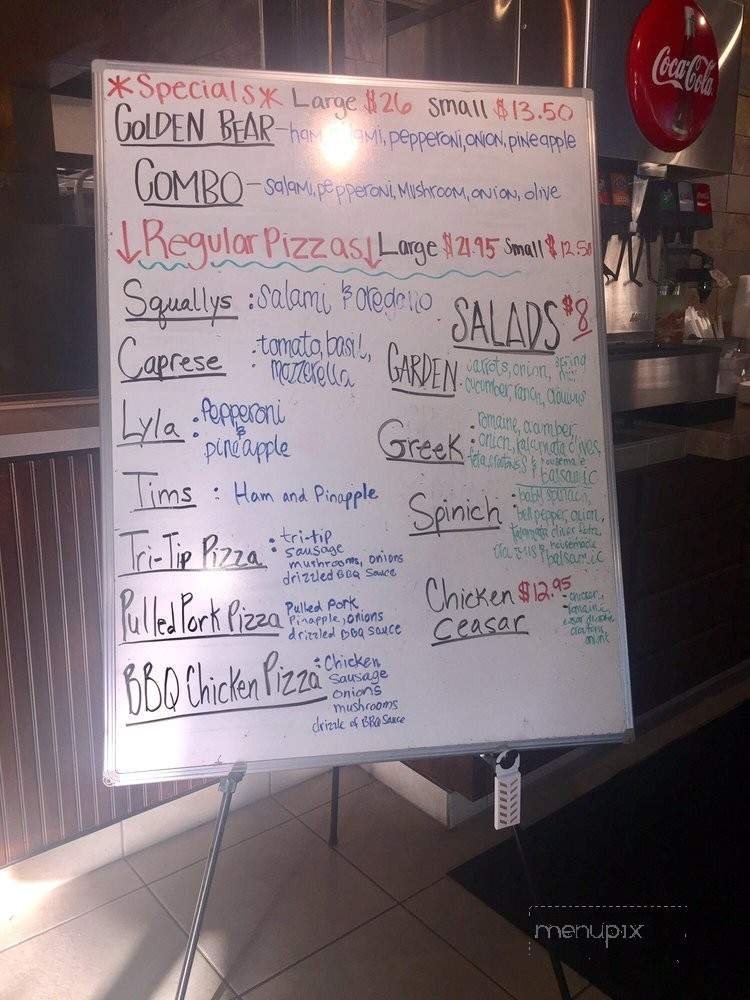 *Specials* Large $26 small $13.50
GOLDEN BEAR - ham, salami, pepperoni, onion, pineapple
COMBO - salami, pepperoni, Mushroom, onion, olive
↓Regular Pizzas↓ Large $21.95 Small $12.50
Squallys : salami & oregano
Caprese : tomato, basil,
mozzerella
Lyla : Pepperoni
&
pineapple
Tims : Ham and Pinapple
Tri-Tip Pizza : tri-tip
sausage
mushrooms, onions
drizzled BBQ Sauce
Pulled Pork Pizza Pulled Pork
Pinapple, onions
drizzled BBQ sauce
BBQ Chicken Pizza : Chicken
Sausage
onions
mushrooms
drizzle of BBQ Sauce
SALADS $8
GARDEN : carrots, onion, spring mix
cucumber, ranch, croutons
Greek : romaine, cucumber,
onion, kalamata olives,
feta, croutons & housemade
balsamic
Spinich : baby spinach,
bell pepper, onion,
kalamata olives, feta,
housemade
balsamic
Chicken $12.95
Ceasar
- chicken,
romaine,
croutons,
Coca-Cola
menupix